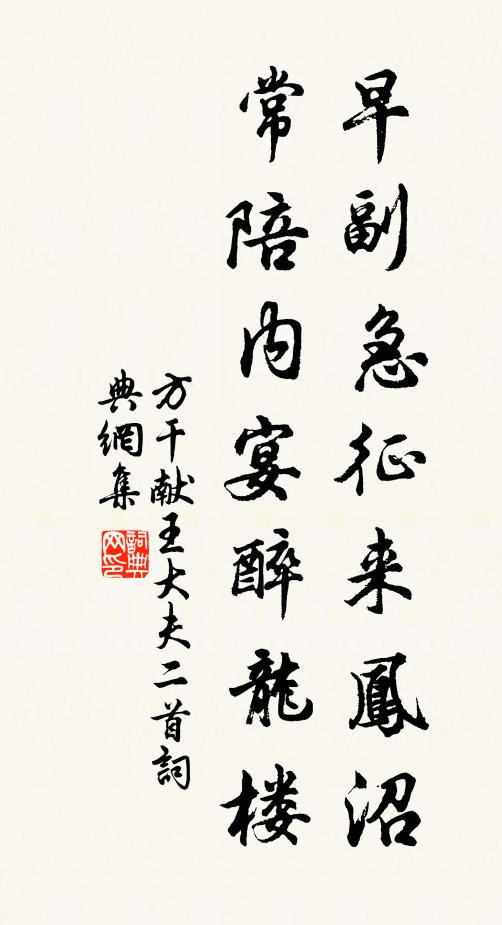 早副急征来鳳沼
常陪内宴醉龍楼
方干献王大夫二首詞
典網集
詞典网印